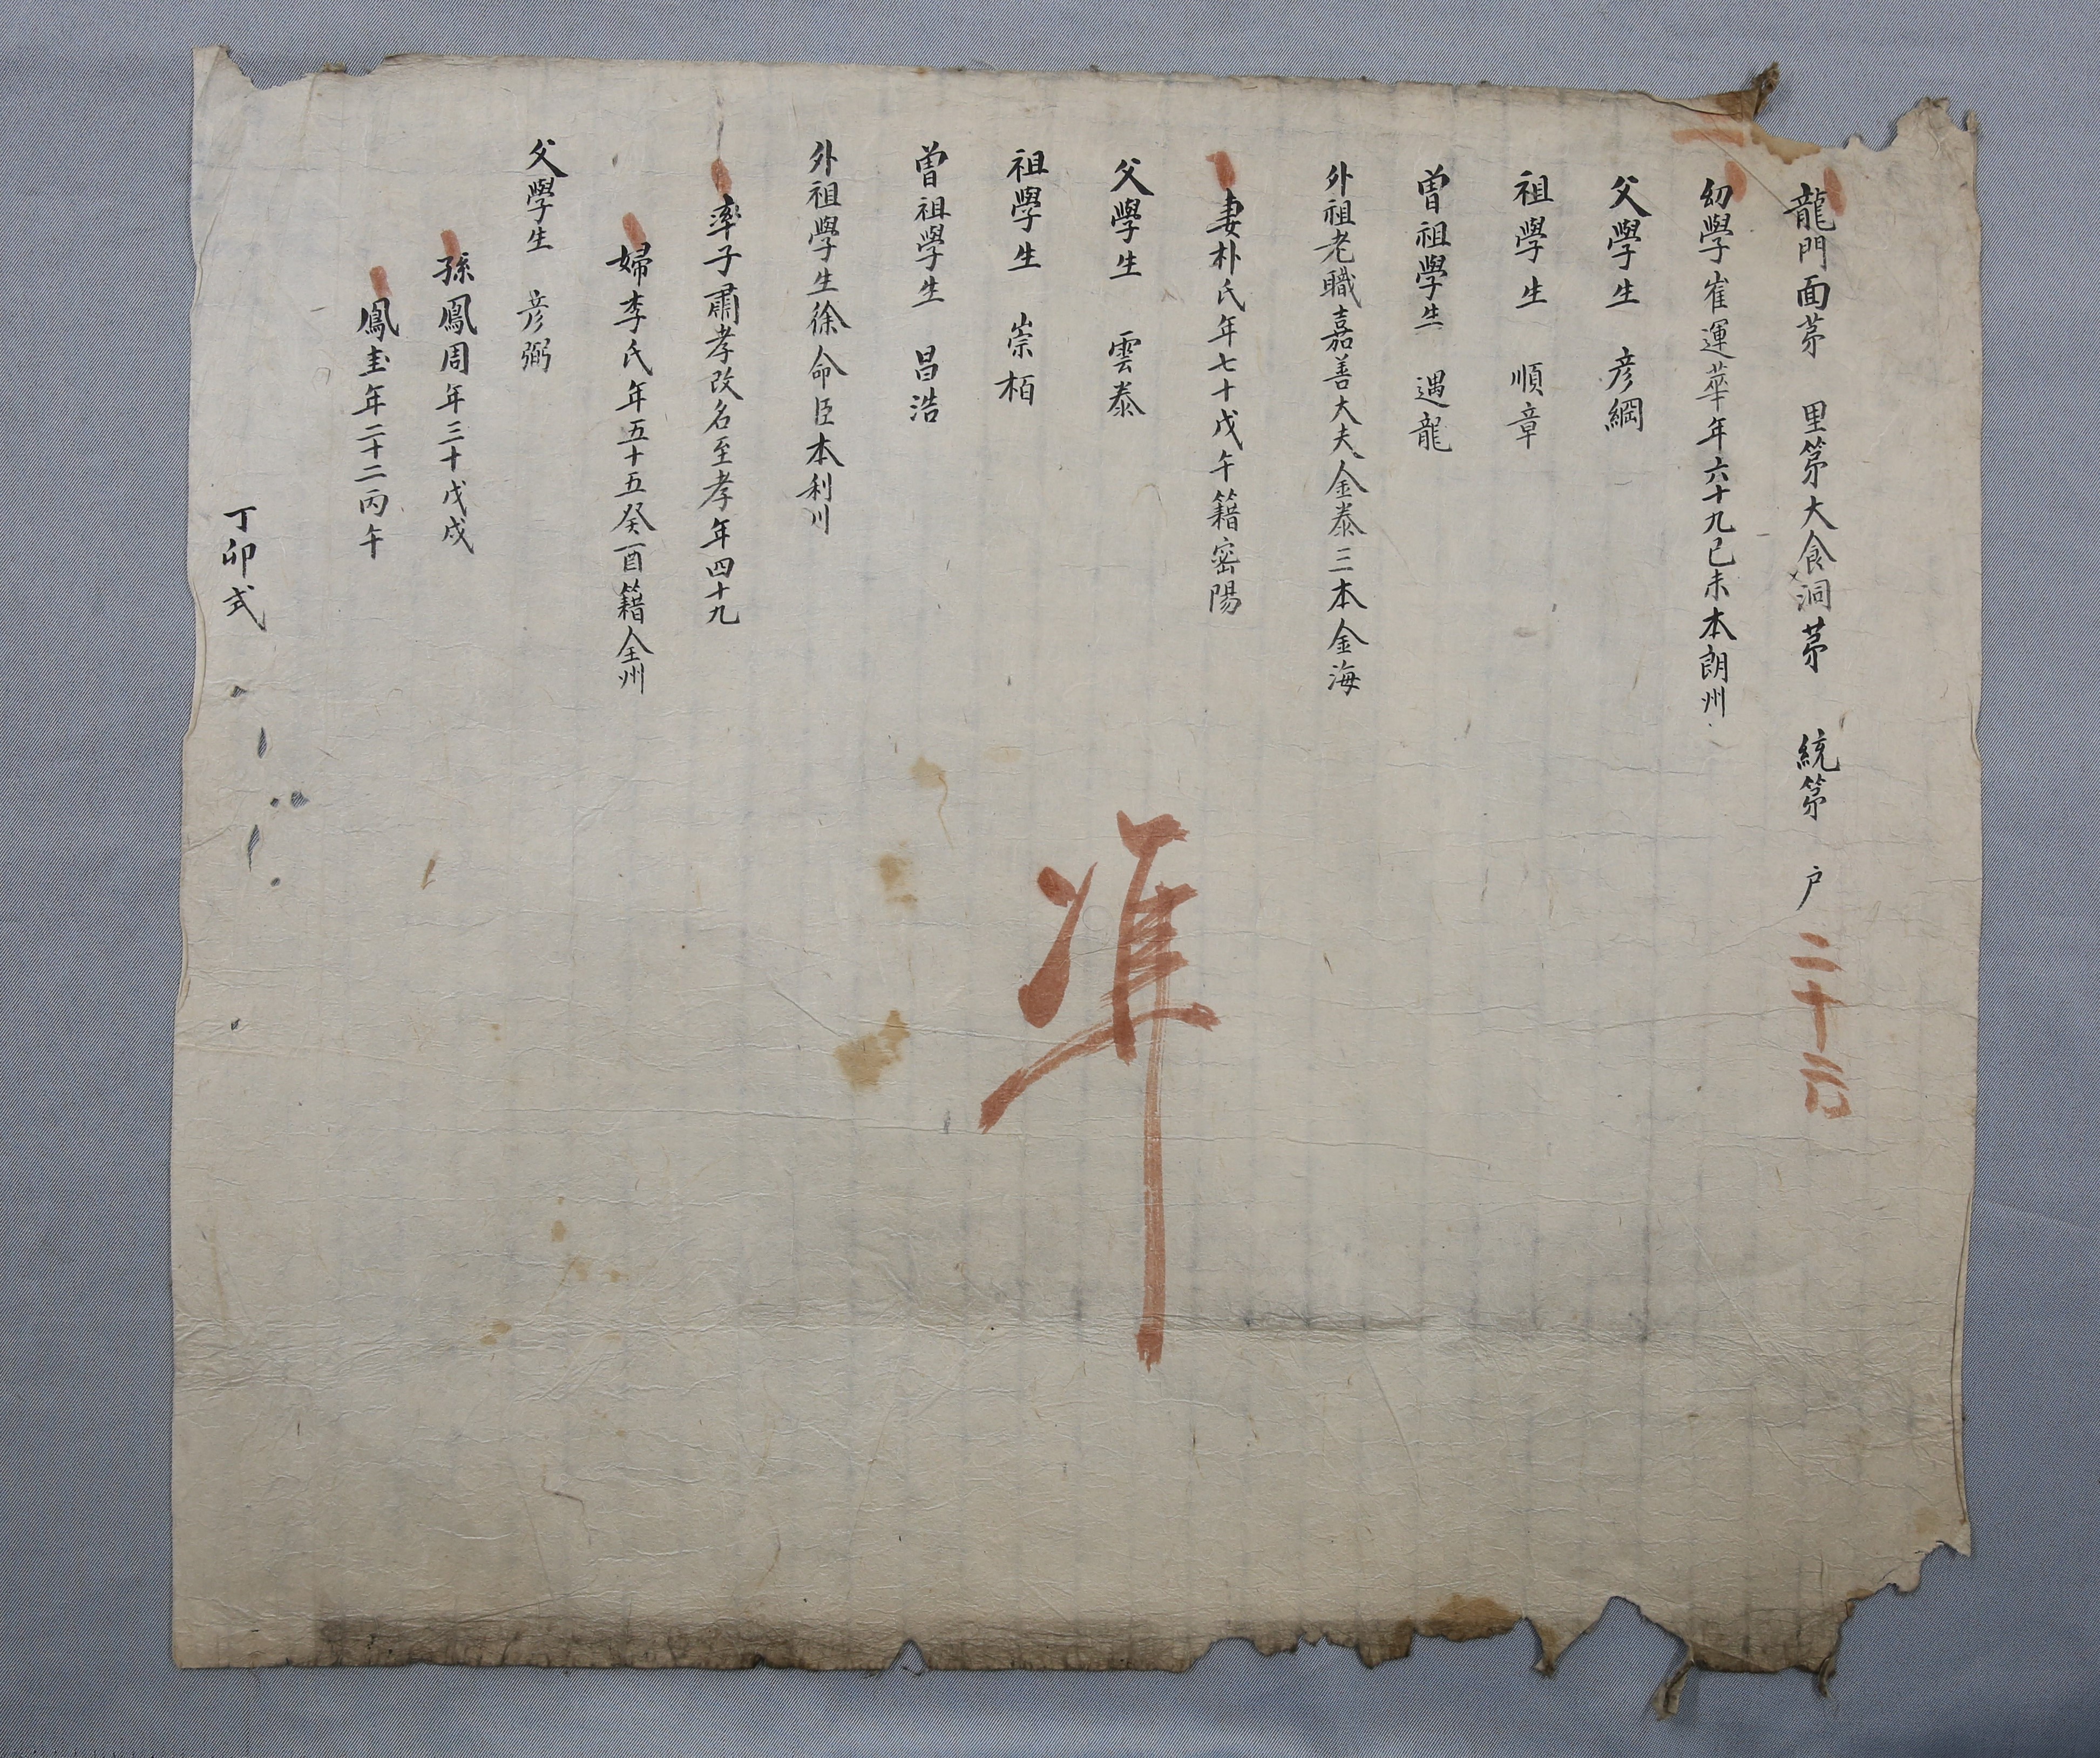 龍門面茅 里第大食洞第 統第 戶 二十六
幼學崔運華年六十九己未本朗州
父學生 彦綱
祖學生 順章
曽祖學生 遇龍
外祖老職嘉善大夫金泰三本金海
妻朴氏年七十戊午籍密陽
父學生 雲泰
祖學生 崇栢
曽祖學生 昌浩
外祖學生徐命臣本利川
率子肅孝改名至孝年四十九
婦李氏年五十五癸酉籍全州
父學生 彦弼
孫鳳周年三十戊戌
鳳圭年二十二丙午
丁卯式
准